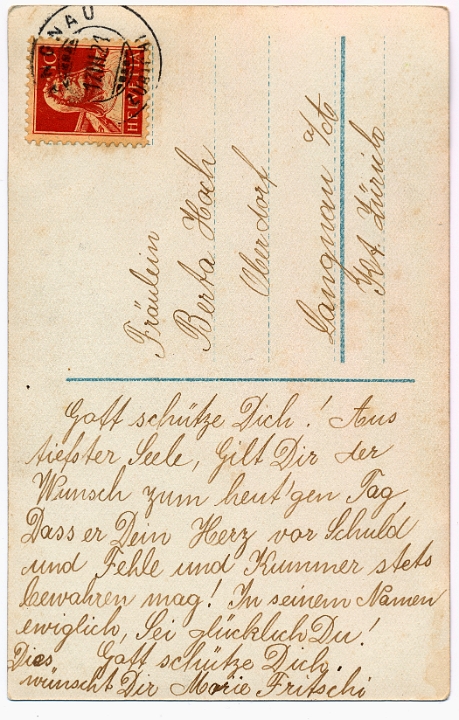 HELVETIA
Fräulein
Berta Hoch
Oberdorf
Langnau a/
Kt. Zürich
Gott schütze Dich! Aus
tiefster Seele, Gilt Dir der
Wunsch zum heut'gen Tag,
Dass er Dein Herz vor Schuld
und Fehle und Kummer stets
bewahren mag! In seinem Namen
ewiglich, Sei glücklich Du!
Gott schütze Dich.
Dies wünscht Dir Marie Fritschi